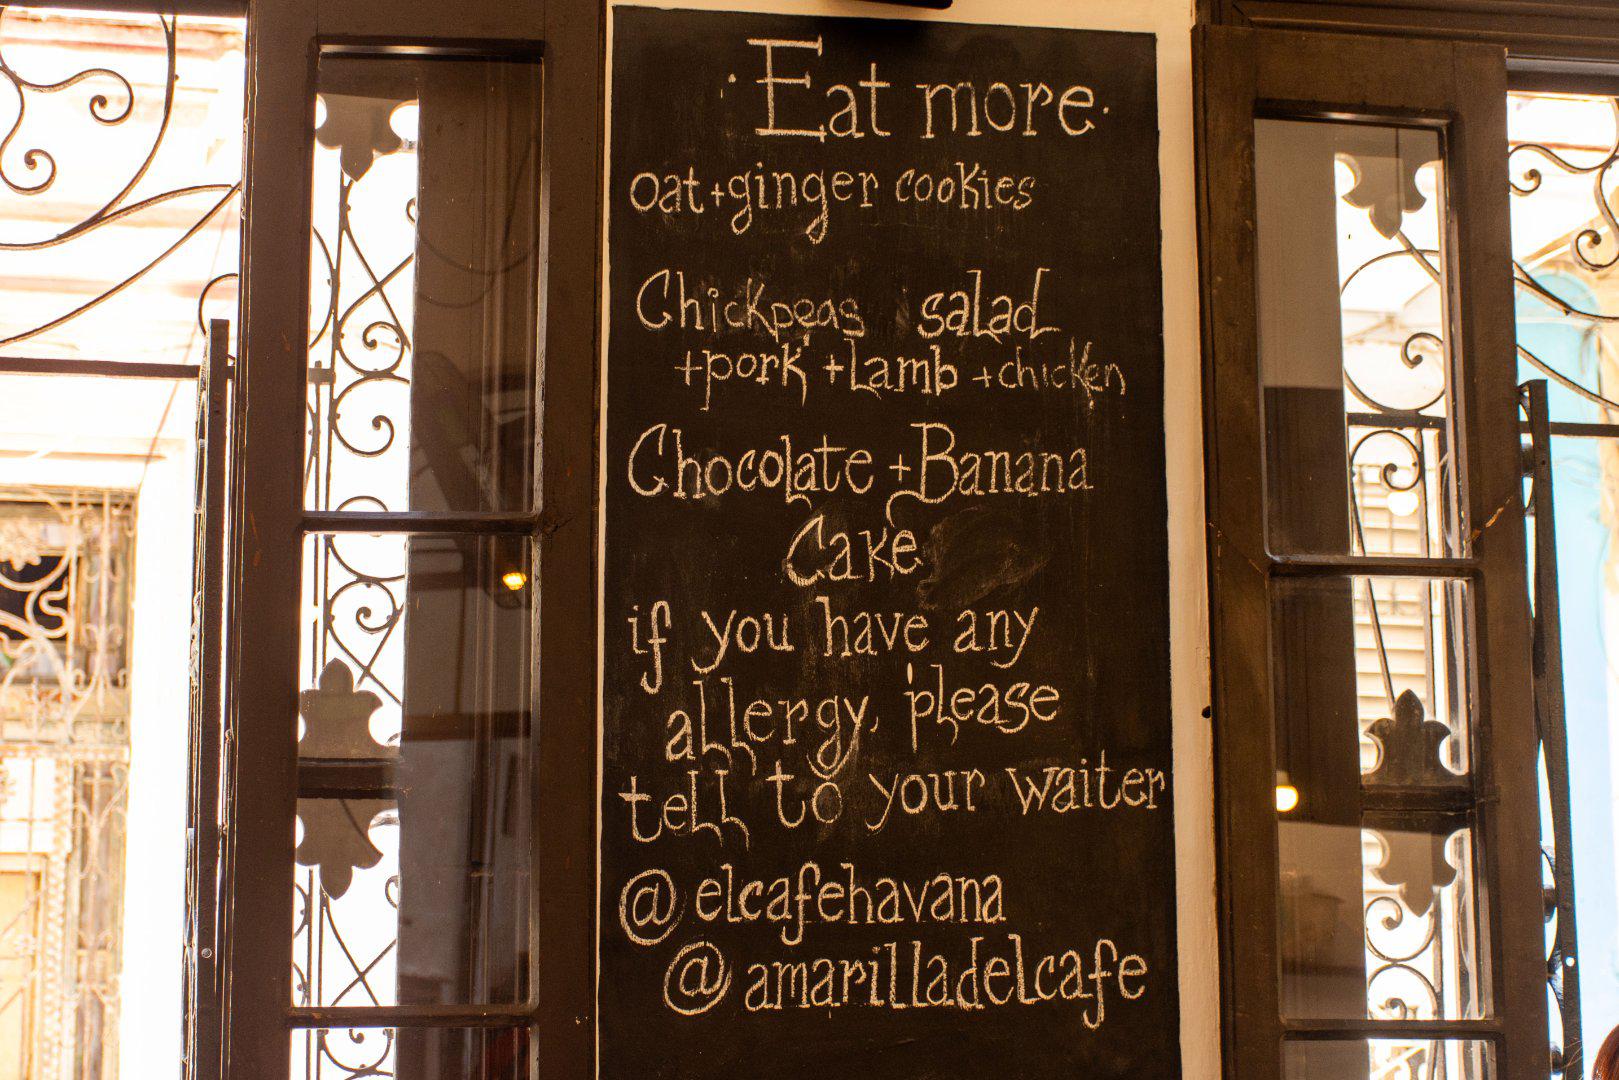 · Eat more ·
oat+ginger cookies
Chickpeas salad
+pork +Lamb +chicken
Chocolate +Banana
Cake
if you have any
allergy, please
tell to your waiter
@elcafehavana
@amarilladelcafe